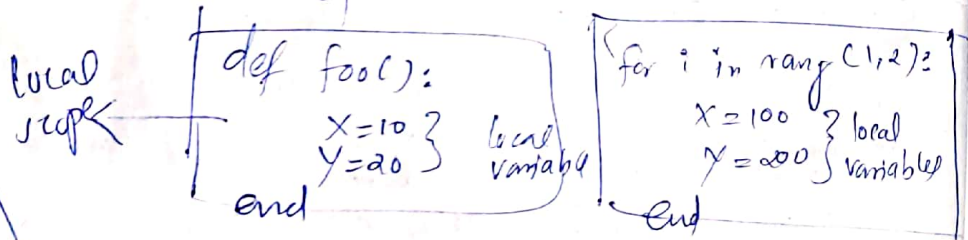 local
scope
def foo():
X=10 } local
Y=20 } variable
end
for i in rang (1,2):
X=100 } local
Y=200 } variables
end